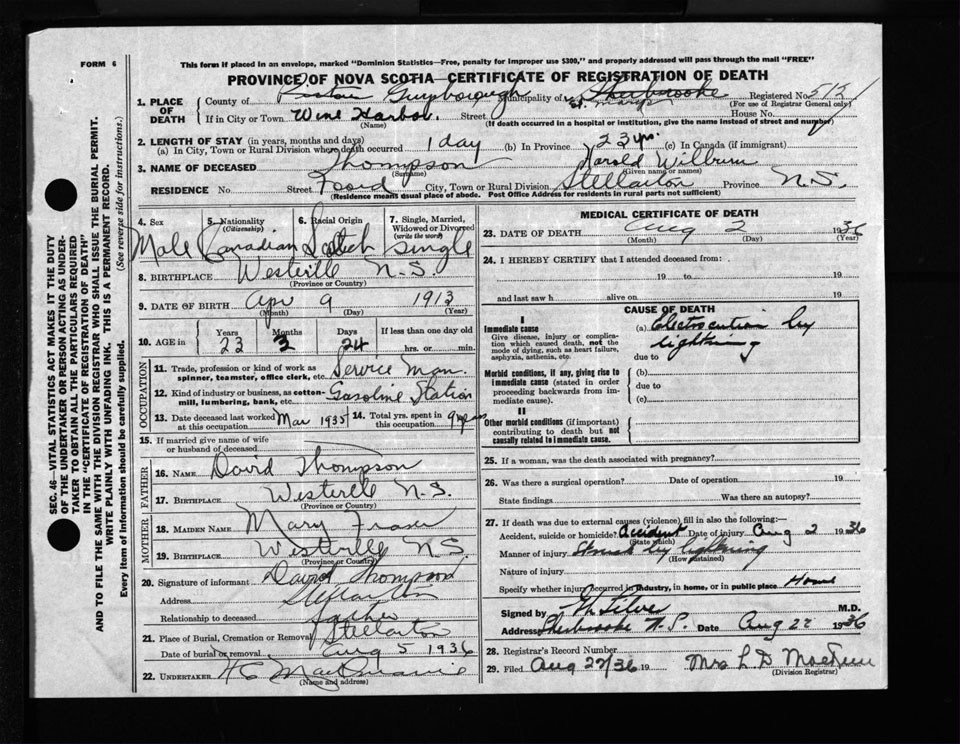 FORM 6
This form if placed in an envelope, marked "Dominion Statistics—Free, penalty for improper use $300," and properly addressed will pass through the mail "FREE"
PROVINCE OF NOVA SCOTIA—CERTIFICATE OF REGISTRATION OF DEATH
1. PLACE OF DEATH
County of Guysborough Municipality of St. Marys Sherbrooke Registered No.
(For use of Registrar General only)
If in City or Town Wine Harbor Street House No.
(Name) (If death occurred in a hospital or institution, give the name instead of street and number)
2. LENGTH OF STAY (in years, months and days)
(a) In City, Town or Rural Division where death occurred 1 day (b) In Province 23 yr. (c) In Canada (if immigrant)
3. NAME OF DECEASED Thompson Harold
(Surname) (Given name or names)
RESIDENCE No. Street Foord City, Town or Rural Division Stellarton Province N.S.
(Residence means usual place of abode. Post Office Address for residents in rural parts not sufficient)
4. Sex 5. Nationality (Citizenship) 6. Racial Origin 7. Single, Married, Widowed or Divorced (write the word)
Male Canadian Scotch Single
8. BIRTHPLACE Westville N.S.
(Province or Country)
9. DATE OF BIRTH Apr 9 1913
(Month) (Day) (Year)
10. AGE in Years Months Days If less than one day old
23 3 24 hrs. or min.
OCCUPATION
11. Trade, profession or kind of work as spinner, teamster, office clerk, etc. Service Man.
12. Kind of industry or business, as cotton-mill, lumbering, bank, etc. Gasoline Station
13. Date deceased last worked at this occupation Mar 1935 14. Total yrs. spent in this occupation
15. If married give name of wife or husband of deceased
FATHER
16. NAME David Thompson
17. BIRTHPLACE Westville N.S.
(Province or Country)
MOTHER
18. MAIDEN NAME Mary Fraser
19. BIRTHPLACE Westville N.S.
(Province or Country)
20. Signature of informant David Thompson
Address Stellarton
Relationship to deceased father
21. Place of Burial, Cremation or Removal Stellarton
Date of burial or removal Aug 5 1936
22. UNDERTAKER
(Name and address)
MEDICAL CERTIFICATE OF DEATH
23. DATE OF DEATH Aug 2 1936
(Month) (Day) (Year)
24. I HEREBY CERTIFY that I attended deceased from:
19 to 19
and last saw h alive on 19
CAUSE OF DEATH
I
Immediate cause (a) Electrocution by lightning
Give disease, injury or complication which caused death, not the mode of dying, such as heart failure, asphyxia, asthenia, etc.
due to
Morbid conditions, if any, giving rise to immediate cause (stated in order proceeding backwards from immediate cause).
(b)
due to
(c)
II
Other morbid conditions (if important) contributing to death but not causally related to immediate cause.
25. If a woman, was the death associated with pregnancy?
26. Was there a surgical operation? Date of operation 19
State findings Was there an autopsy?
27. If death was due to external causes (violence) fill in also the following:—
Accident, suicide or homicide? Accident Date of injury Aug 2 1936
(State which)
Manner of injury Struck by lightning
(How sustained)
Nature of injury
Specify whether injury occurred in industry, in home, or in public place Home
Signed by M.D.
Address Sherbrooke N.S. Date Aug 22 1936
28. Registrar's Record Number
29. Filed Aug 27/36 19 Mrs L D
(Division Registrar)
SEC. 46—VITAL STATISTICS ACT MAKES IT THE DUTY
OF THE UNDERTAKER OR PERSON ACTING AS UNDER-
TAKER TO OBTAIN ALL THE PARTICULARS REQUIRED
IN THE "CERTIFICATE OF REGISTRATION OF DEATH"
AND TO FILE THE SAME WITH THE DIVISION REGISTRAR WHO SHALL ISSUE THE BURIAL PERMIT.
WRITE PLAINLY WITH UNFADING INK. THIS IS A PERMANENT RECORD.
Every item of Information should be carefully supplied. (See reverse side for instructions.)